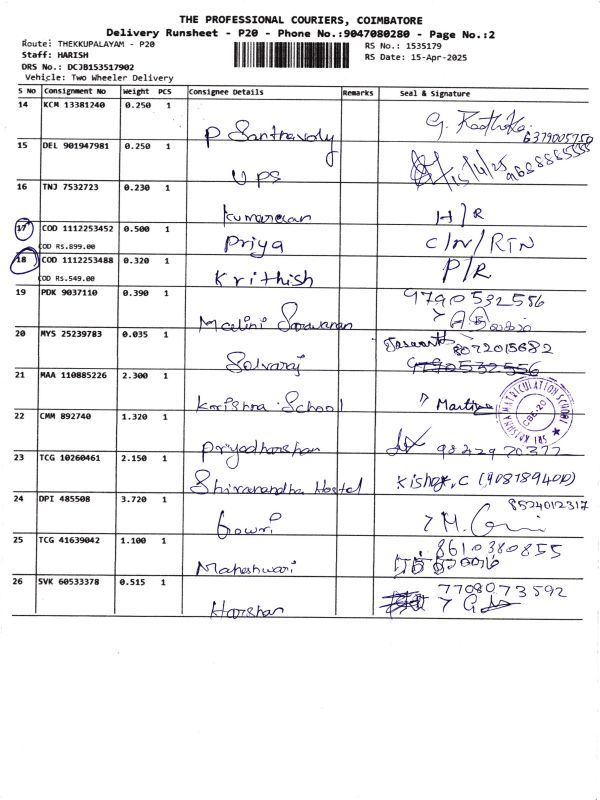 THE PROFESSIONAL COURIERS, COIMBATORE
Delivery Runsheet - P20 - Phone No.:9047080280 - Page No.:2
Route: THEKKUPALAYAM - P20
RS No.: 1535179
Staff: HARISH
RS Date: 15-Apr-2025
DRS No.: DCJB153517902
Vehicle: Two Wheeler Delivery
S No Consignment No Weight PCS Consignee Details Remarks Seal & Signature
14 KCM 13381240 0.250 1
P
6379005750
15 DEL 901947981 0.250 1
UPS 15/4/25
16 TNJ 7532723 0.230 1
Kumaresan H/R
17 COD 1112253452 0.500 1
COD RS.899.00 Priya C/N/RTN
18 COD 1112253488 0.320 1
COD RS.549.00 Krithish P/R
19 PDK 9037110 0.390 1
9790532556
Malini Saravanan
20 MYS 25239783 0.035 1
8072015682
Selvaraj 9790532556
21 MAA 110885226 2.300 1
Krishna School
KRISHNA MATRICULATION SCHOOL
CBE-20
22 CMM 892740 1.320 1
Priyadharshan
23 TCG 10260461 2.150 1
Shivanandha Hostel Kishor, C
24 DPI 485508 3.720 1
8524012317
Gowri
25 TCG 41639042 1.100 1
8610380855
Maheshwari
26 SVK 60533378 0.515 1
7708073592
Harshan